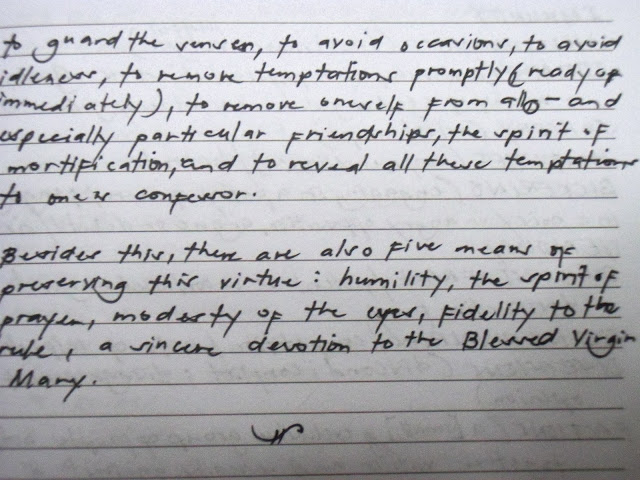 to guard the senses, to avoid occasions, to avoid
idleness, to remove temptations promptly (ready or
immediately), to remove oneself from all – and
especially particular friendships, the spirit of
mortification, and to reveal all these temptations
to one's confessor.
Besides this, there are also five means of
preserving this virtue: humility, the spirit of
prayer, modesty of the eyes, fidelity to the
rule, a sincere devotion to the Blessed Virgin
Mary.